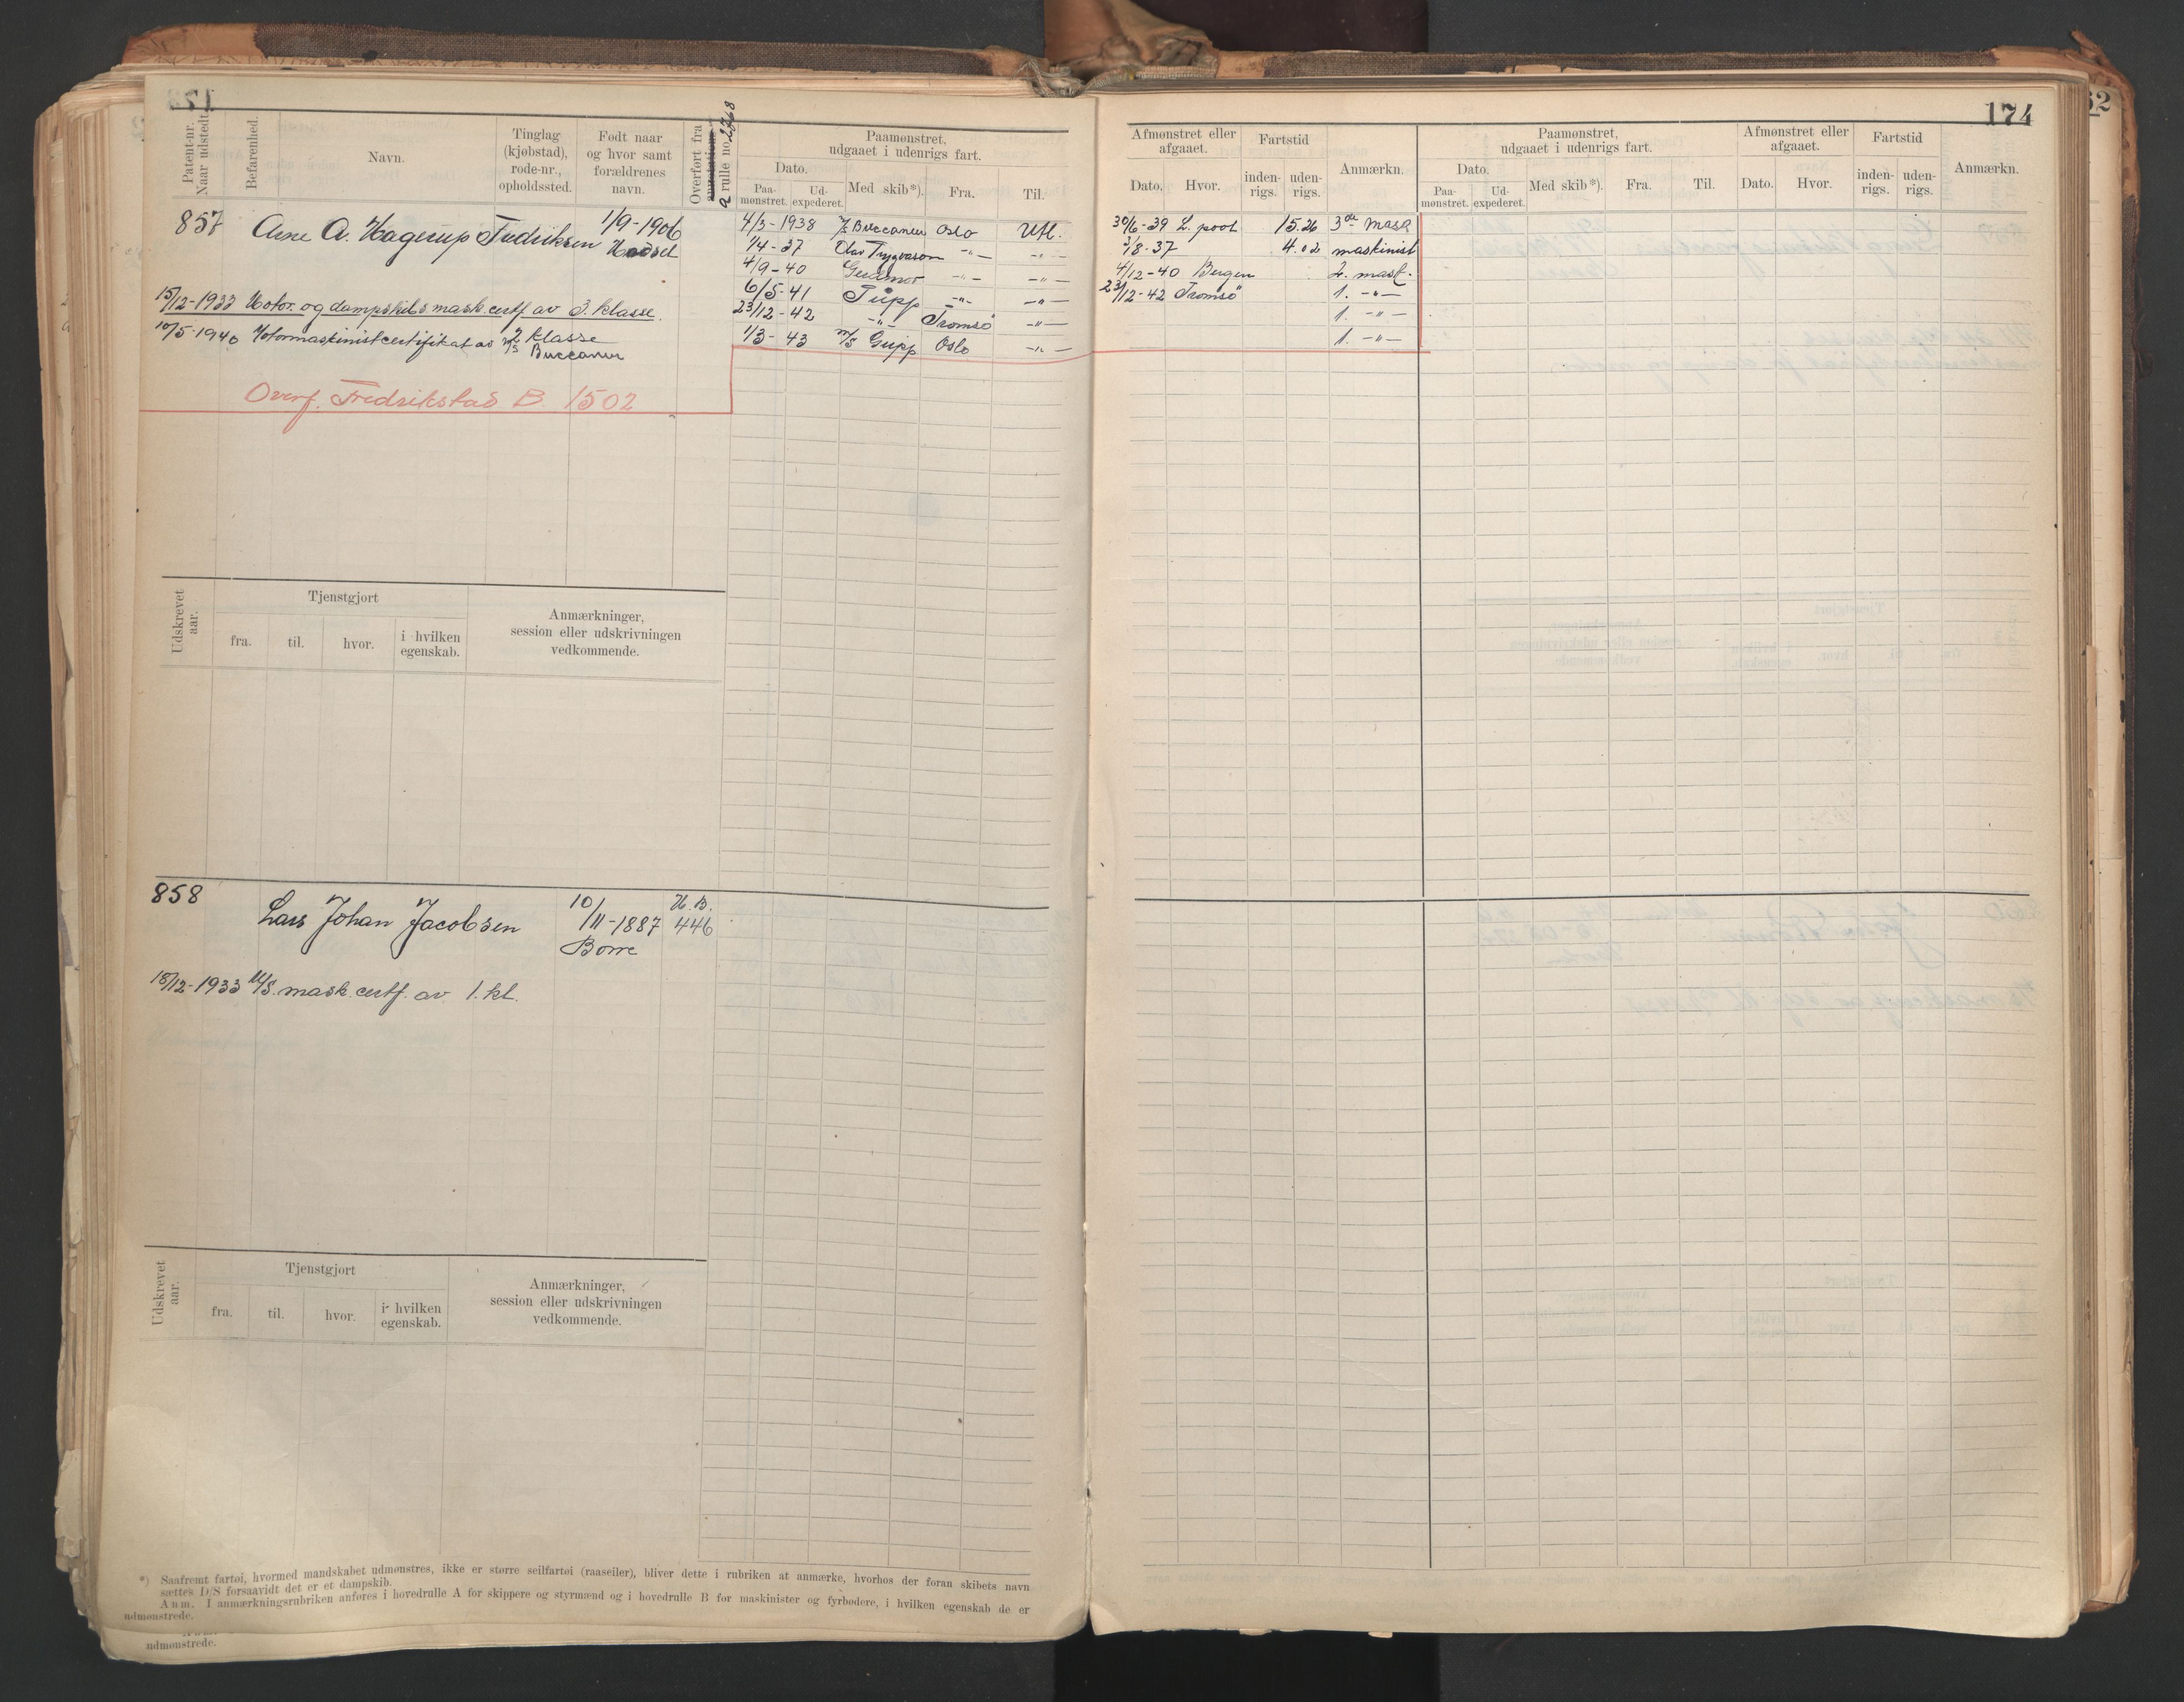 174
Patent-nr. Naar udstedt.
Befarenhed.
Navn.
Tinglag (kjøbstad), rode-nr., opholdssted.
Født naar og hvor samt forældrenes navn.
Overført fra annotations- a rulle no. 2768
Paamønstret, udgaaet i udenrigs fart.
Dato.
Paa-mønstret.
Ud-expederet.
Med skib*).
Fra.
Til.
Afmønstret eller afgaaet.
Dato.
Hvor.
Fartstid
inden-rigs.
uden-rigs.
Anmærkn.
Paamønstret, udgaaet i udenrigs fart.
Dato.
Paa-mønstret.
Ud-expederet.
Med skib*).
Fra.
Til.
Afmønstret eller afgaaet.
Dato.
Hvor.
Fartstid
inden-rigs.
uden-rigs.
Anmærkn.
857 Arne A. Hagerup Fredriksen 1/9-1906
4/3-1938 Buccaneer Oslo Utl. 30/6-39 L.pool 15.26 3de mask
1/4-37 Olav Trygvason -"- -"- 3/8-37 4.02 maskinist
4/9-40 -"- -"- 4/12-40 Bergen 2. mask.
6/5-41 -"- -"- 23/12-42 Tromsö 1. -"-
15/12-1933 Motor og dampskibs mask. certf av 3. klasse.
23/12-42 -"- Tromsö -"- 1. -"-
10/5-1940 Motormaskinistcertifikat av 2 klasse
M/S Buccaneer
1/3-43 M/S Gripp Oslo -"- 1. -"-
Overf. Fredrikstad B 1502
Udskrevet aar.
Tjenstgjort
fra.
til.
hvor.
i hvilken egenskab.
Anmærkninger, session eller udskrivningen vedkommende.
858 Lars Johan Jacobsen 10/11-1887 H.B. 446
Borre
18/12-1933 M/S. mask. certf. av 1. kl.
Udskrevet aar.
Tjenstgjort
fra.
til.
hvor.
i hvilken egenskab.
Anmærkninger, session eller udskrivningen vedkommende.
*) Saafremt fartøi, hvormed mandskabet udmønstres, ikke er større seilfartøi (raaseiler), bliver dette i rubriken at anmærke, hvorhos der foran skibets navn
sættes D/S forsaavidt det er et dampskib.
Anm. I anmærkningsrubriken anføres i hovedrulle A for skippere og styrmænd og i hovedrulle B for maskinister og fyrbødere, i hvilken egenskab de er
udmønstrede.
udmønstrede.